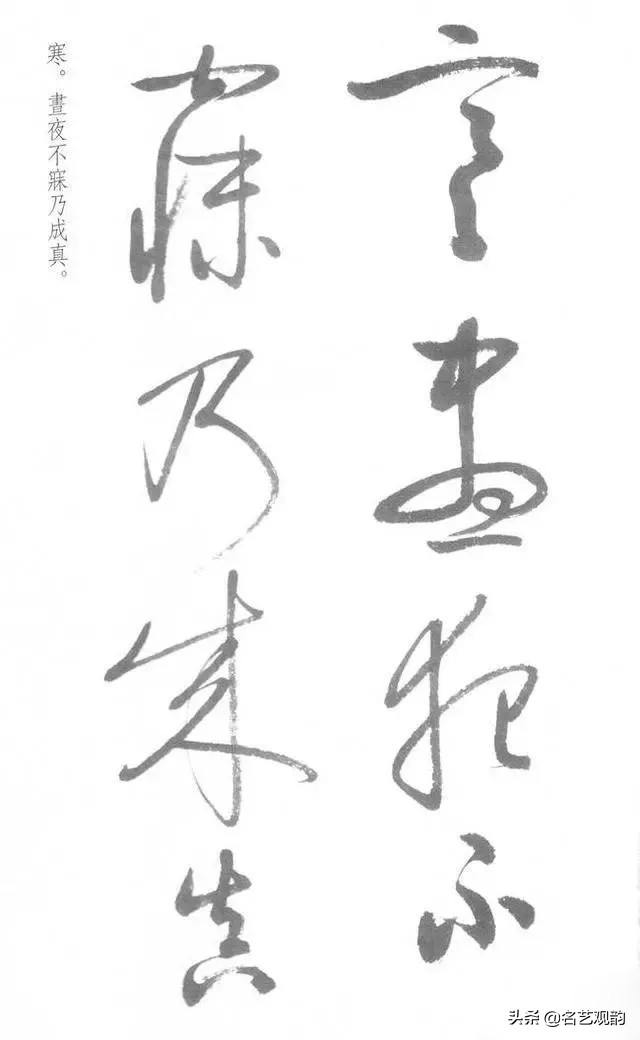 寒晝夜不
寐乃成真
寒。晝夜不寐乃成真。
头条 @名艺观韵